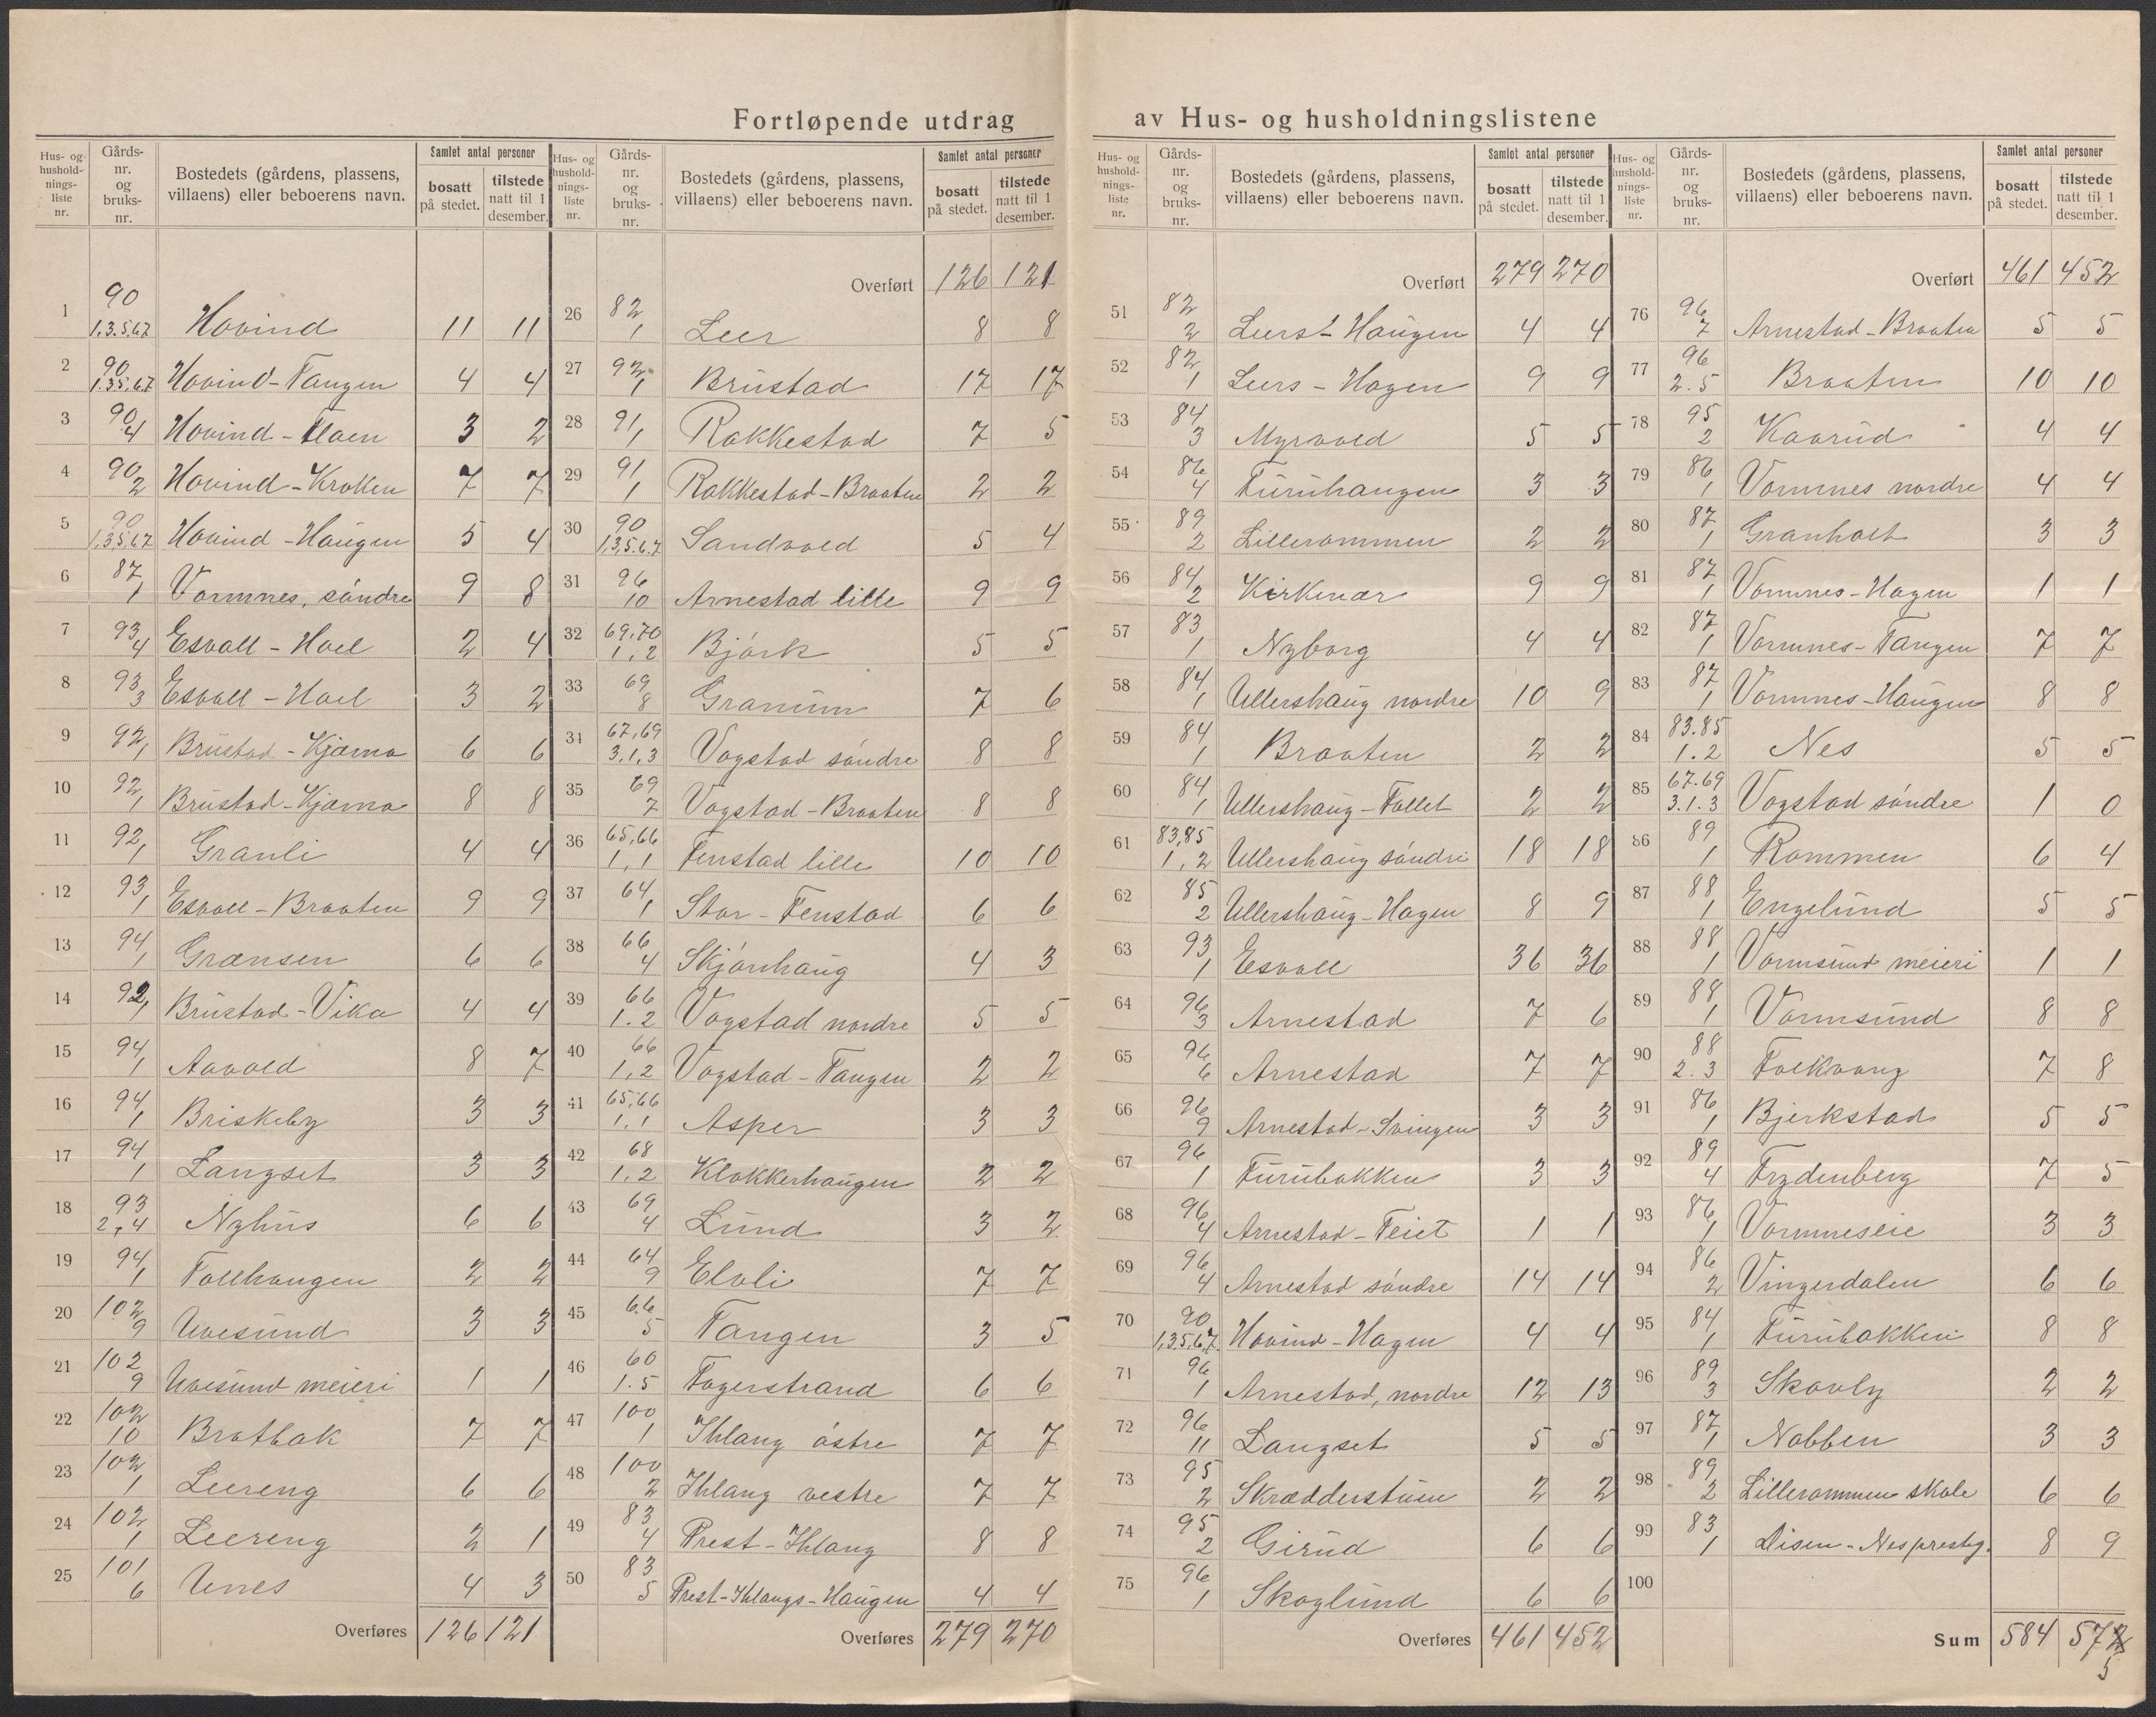 Fortløpende utdrag av Hus- og husholdningslistene
Hus- og hushold-nings-liste nr. Gårds-nr. og bruks-nr. Bostedets (gårdens, plassens, villaens) eller beboerens navn. Samlet antal personer bosatt på stedet. tilstede natt til 1 desember.
1 90 1.3.5.6.7 Hovind 11 11
2 90 1.3.5.6.7 Hovind-Tangen 4 4
3 90 4 Hovind-Flaen 3 2
4 90 2 Hovind-Kroken 7 7
5 90 1,3,5,6,7 Hovind-Haugen 5 4
6 87 1 Vormnes, söndre 9 8
7 93 4 Esvall-Hoel 2 4
8 93 3 Esvall-Hoel 3 2
9 92 1 Brustad-Kjærna 6 6
10 92 1 Brustad-Kjærna 8 8
11 92 1 Granli 4 4
12 93 1 Esvall-Braaten 9 9
13 94 1 Grænsen 6 6
14 92 1 Brustad-Vika 4 4
15 94 1 Aavold 8 7
16 94 1 Briskeby 3 3
17 94 1 Langset 3 3
18 93 2,4 Nyhus 6 6
19 94 1 Tollhaugen 2 2
20 102 9 Uvesund 3 3
21 102 9 Uvesund meieri 1 1
22 102 10 Bratbak 7 7
23 102 1 Leereng 6 6
24 102 1 Leereng 2 1
25 101 6 Unes 4 3
Overføres 126 121
Hus- og hushold-nings-liste nr. Gårds-nr. og bruks-nr. Bostedets (gårdens, plassens, villaens) eller beboerens navn. Samlet antal personer bosatt på stedet. tilstede natt til 1 desember.
Overført 126 121
26 82 1 Leer 8 8
27 92 1 Brustad 17 17
28 91 1 Rakkestad 7 5
29 91 1 Rakkestad-Braaten 2 2
30 90 1,3,5.6.7 Sandvold 5 4
31 96 10 Arnestad lille 9 9
32 69,70 1,2 Björk 5 5
33 69 8 Granum 7 6
34 67,69 3.1.3 Vogstad söndre 8 8
35 69 7 Vogstad-Braaten 8 8
36 65,66 1,1 Fenstad lille 10 10
37 64 1 Stor-Fenstad 6 6
38 66 4 Skjönhaug 4 3
39 66 1.2 Vogstad nordre 5 5
40 66 1,2 Vogstad-Tangen 2 2
41 65,66 1,1 Asper 3 3
42 68 1.2 Klokkerhaugen 2 2
43 69 4 Lund 3 2
44 64 9 Elvli 7 7
45 66 5 Tangen 3 5
46 60 1.5 Fagerstrand 6 6
47 100 1 Ihlang östre 7 7
48 100 2 Ihlang vestre 7 7
49 83 4 Prest-Ihlang 8 8
50 83 5 Prest-Ihlangs-Haugen 4 4
Overføres 279 270
Hus- og hushold-nings-liste nr. Gårds-nr. og bruks-nr. Bostedets (gårdens, plassens, villaens) eller beboerens navn. Samlet antal personer bosatt på stedet. tilstede natt til 1 desember.
Overført 279 270
51 82 2 Leers-Haugen 4 4
52 82 1 Leers-Hagen 9 9
53 84 3 Myrvold 5 5
54 86 4 Furuhaugen 3 3
55 89 2 Lillerommen 2 2
56 84 2 Kirkenær 9 9
57 83 1 Nyborg 4 4
58 84 1 Ullershaug nordre 10 9
59 84 1 Braaten 2 2
60 84 1 Ullershaug-Tollet 2 2
61 83,85 1,2 Ullershaug söndre 18 18
62 85 2 Ullershaug-Hagen 8 9
63 93 1 Esvall 36 36
64 96 3 Arnestad 7 6
65 96 6 Arnestad 7 7
66 96 9 Arnestad-Svingen 3 3
67 96 1 Furubakken 3 3
68 96 4 Arnestad-Teiet 1 1
69 96 4 Arnestad söndre 14 14
70 90 1,3.5.6.7 Hovind-Hagen 4 4
71 96 1 Arnestad, nordre 12 13
72 96 11 Langset 5 5
73 95 2 Skrædderstuen 2 2
74 95 2 Girud 6 6
75 96 1 Skoglund 6 6
Overføres 461 452
Hus- og hushold-nings-liste nr. Gårds-nr. og bruks-nr. Bostedets (gårdens, plassens, villaens) eller beboerens navn. Samlet antal personer bosatt på stedet. tilstede natt til 1 desember.
Overført 461 452
76 96 7 Arnestad-Braaten 5 5
77 96 2.5 Braaten 10 10
78 95 2 Kavrud 4 4
79 86 1 Vormnes nordre 4 4
80 87 1 Granholt 3 3
81 87 1 Vormnes-Hagen 1 1
82 87 1 Vormnes-Tangen 7 7
83 87 1 Vormnes-Haugen 8 8
84 83.85 1.2 Nes 5 5
85 67.69 3.1.3 Vogstad söndre 1 0
86 89 1 Rommen 6 4
87 88 1 Engelund 5 5
88 88 1 Vormsund meieri 1 1
89 88 1 Vormsund 8 8
90 88 2.3 Folkvang 7 8
91 86 1 Bjerkstad 5 5
92 89 4 Frydenberg 7 5
93 86 1 Vormneseie 3 3
94 86 2 Vingerdalen 6 6
95 84 1 Furubakken 8 8
96 89 3 Skovly 2 2
97 87 1 Nabben 3 3
98 89 2 Lillerommen skole 6 6
99 83 1 Disen-Nes prestg. 8 9
100
Sum 584 572
5